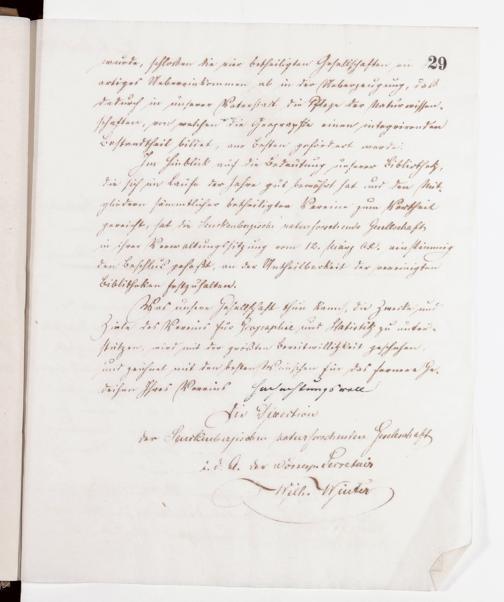 29
wurde, schloßen die vier betheiligten Gesellschaften ein
artiges Uebereinkommen ab in der Ueberzeugung, daß
dadurch in unserer Vaterstadt die Pflege der Naturwissen-
schaften, von welchen die Geographie einen integrirenden
Bestandtheil bildet, am besten gefördert werde.
Im Hinblick auf die Bedeutung unserer Bibliothek,
die sich im Laufe der Jahre gut bewährt hat und den Mit-
gliedern sämmtlicher betheiligten Vereine zum Vortheil
gereicht, hat die Senckenbergische naturforschende Gesellschaft
in ihrer Verwaltungssitzung vom 12. März einstimmig
den Beschluß gefaßt, an der Untheilbarkeit der vereinigten
Bibliotheken festzuhalten.
Was unsere Gesellschaft thun kann, die Zwecke und
Ziele des Vereins für Geographie und Statistik zu unter-
stützen, wird mit der größten Bereitwilligkeit geschehen
und zeichnet mit den besten Wünschen für das fernere Ge-
deihen Ihres Vereins Hochachtungsvoll
Die Direction
der Senckenbergischen naturforschenden Gesellschaft
i. d. A. der Secretair
Wilh. Winter